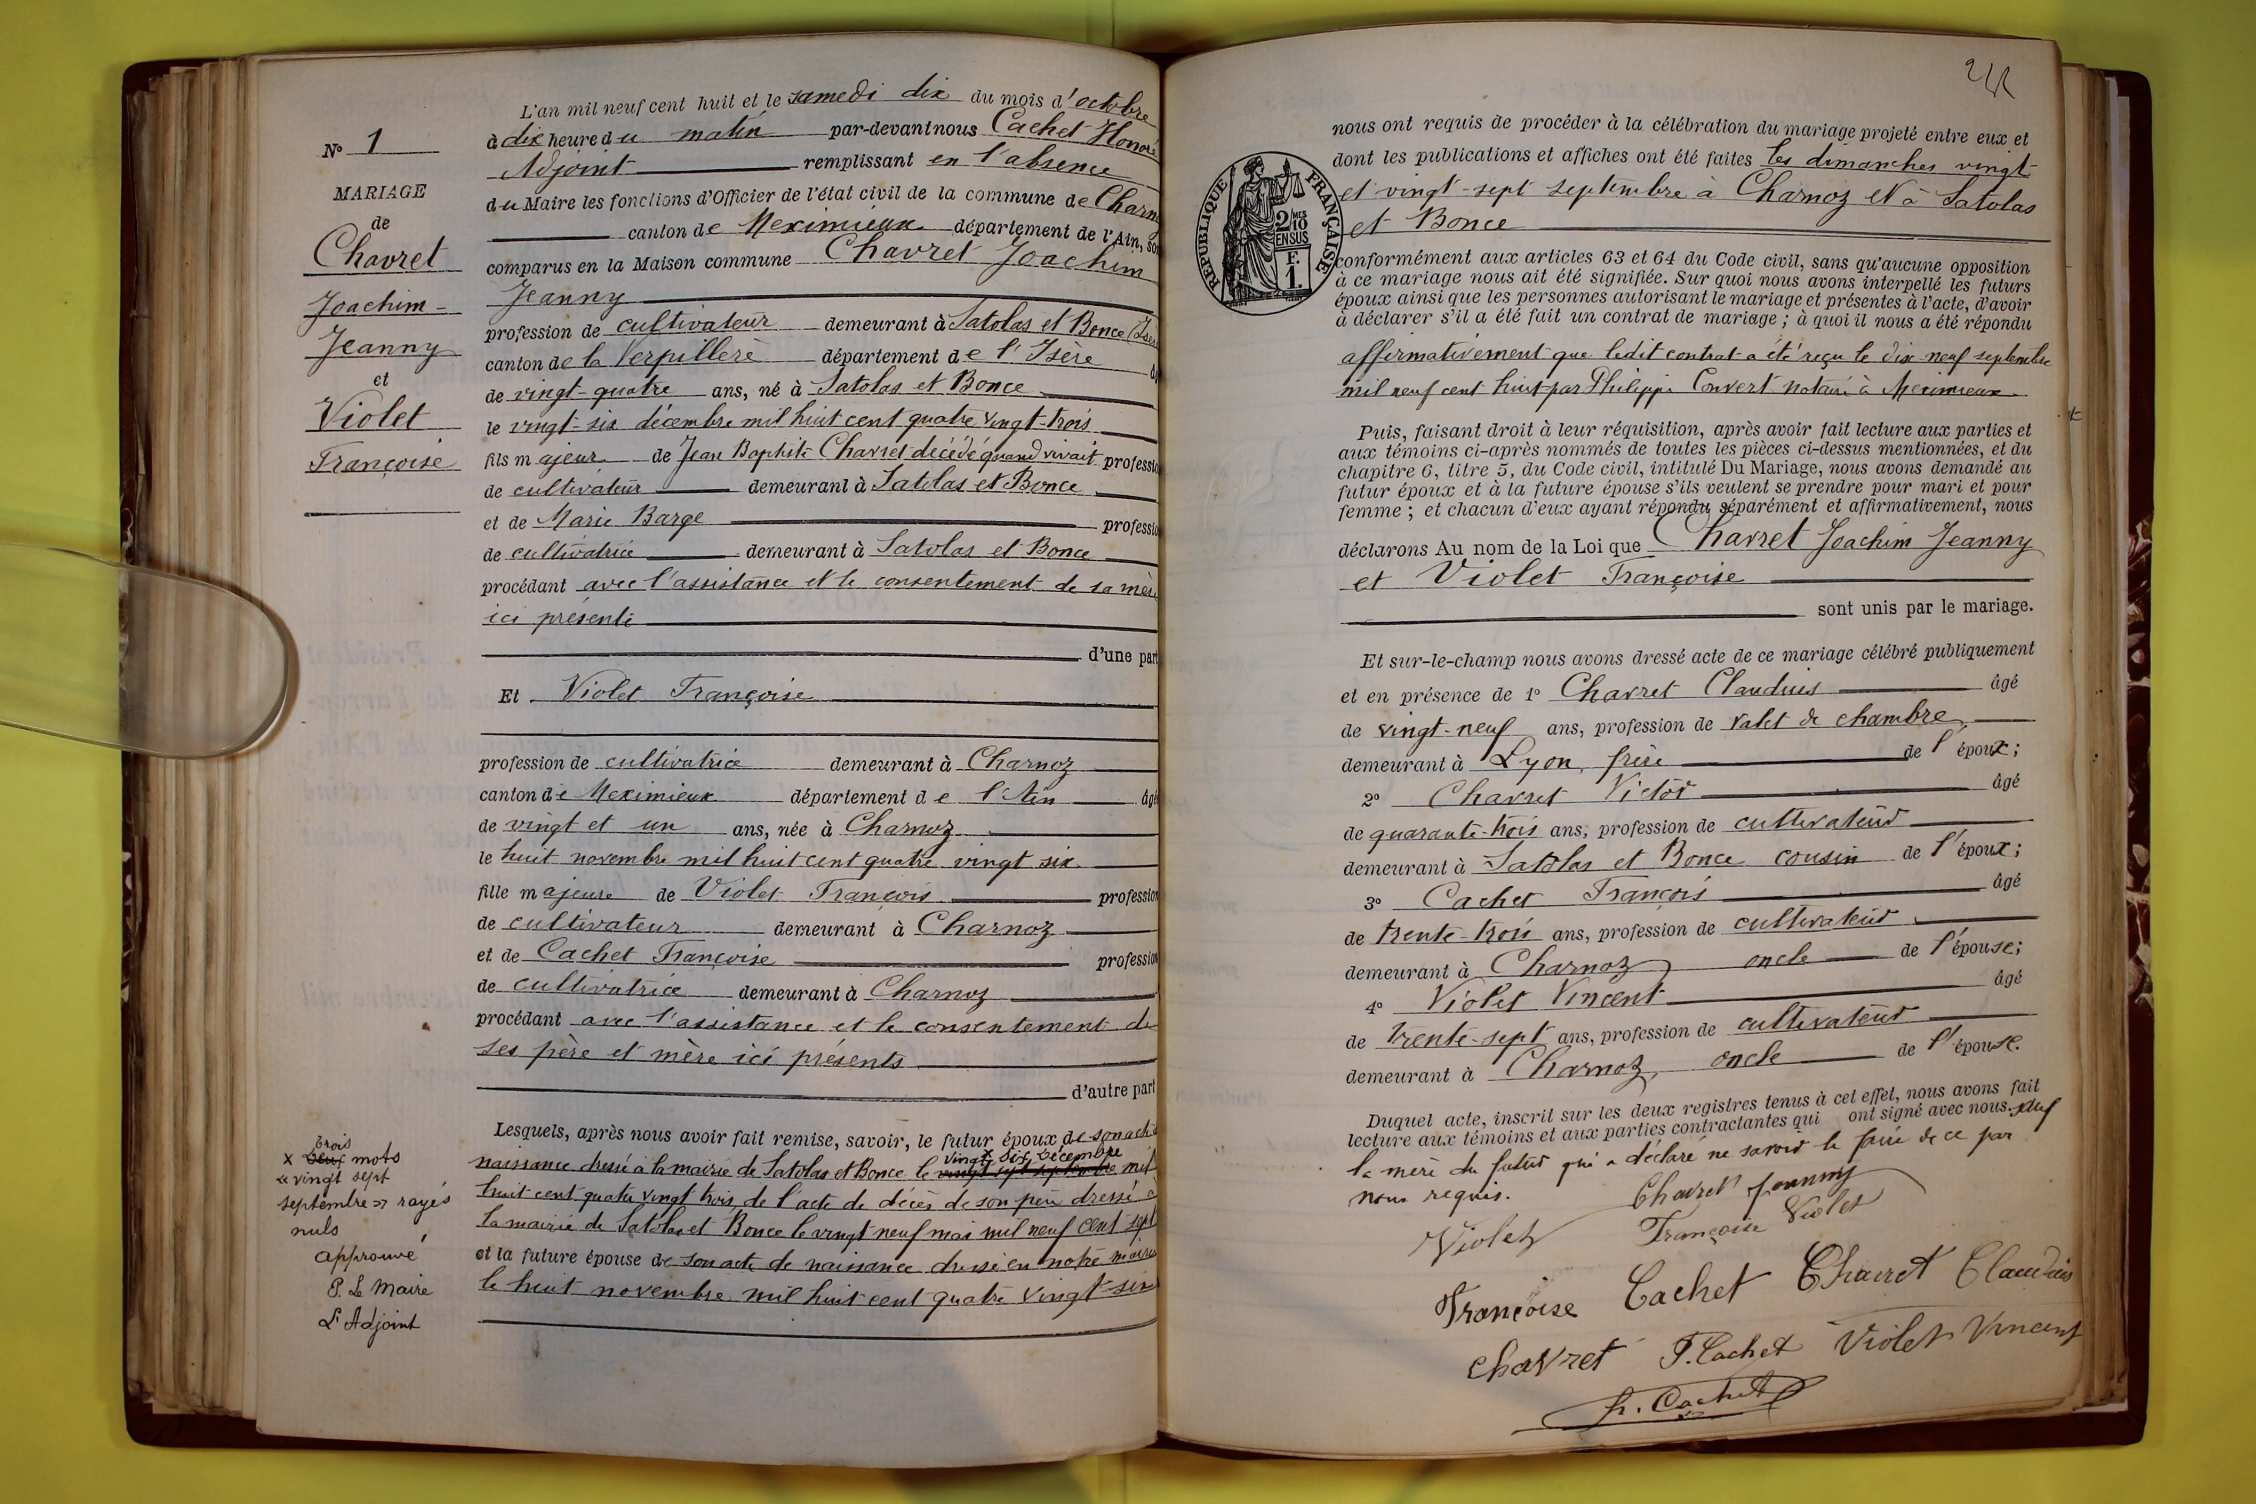 N° 1
MARIAGE
de
Chavret
Joachim-
Jeanny
et
Violet
Françoise
L'an mil neuf cent huit et le samedi dix du mois d'octobre
à dix heure du matin par-devant nous Cachet Honoré
Adjoint remplissant en l'absence
du Maire les fonctions d'Officier de l'état civil de la commune de Charnoz
canton de Meximieux département de l'Ain, son
comparus en la Maison commune Chavret Joachim
Jeanny
profession de cultivateur demeurant à Satolas et Bonce (Isère
canton de la Verpillère département de l'Isère âg
de vingt-quatre ans, né à Satolas et Bonce
le vingt-six décembre mil huit cent quatre vingt-trois
fils majeur de Jean Baptiste Chavret décédé quand vivait profession
de cultivateur demeurant à Satolas et Bonce
et de Marie Barge profession
de cultivatrice demeurant à Satolas et Bonce
procédant avec l'assistance et le consentement de sa mère
ici présente
d'une part
Et Violet Françoise
profession de cultivatrice demeurant à Charnoz
canton de Meximieux département de l'Ain âgé
de vingt et un ans, née à Charnoz
le huit novembre mil huit cent quatre vingt six
fille majeure de Violet François profession
de cultivateur demeurant à Charnoz
et de Cachet Françoise profession
de cultivatrice demeurant à Charnoz
procédant avec l'assistance et le consentement de
ses père et mère ici présents
d'autre part
Lesquels, après nous avoir fait remise, savoir, le futur époux de son acte
vingt six décembre
naissance dressé à la mairie de Satolas et Bonce le vingt sept septembre mil
huit cent quatre vingt trois, de l'acte de décès de son père dressé à
la mairie de Satolas et Bonce le vingt neuf mai mil neuf cent sept
et la future épouse de son acte de naissance dressé en notre mairie
le huit novembre mil huit cent quatre vingt-six
trois
x deux mots
« vingt sept
septembre » rayés
nuls
approuvé
P. Le Maire
L'Adjoint
REPUBLIQUE FRANÇAISE
2/10 MES
EN SUS
F.
1.
nous ont requis de procéder à la célébration du mariage projeté entre eux et
dont les publications et affiches ont été faites les dimanches vingt
et vingt-sept septembre à Charnoz et à Satolas
et Bonce
conformément aux articles 63 et 64 du Code civil, sans qu'aucune opposition
à ce mariage nous ait été signifiée. Sur quoi nous avons interpellé les futurs
époux ainsi que les personnes autorisant le mariage et présentes à l'acte, d'avoir
à déclarer s'il a été fait un contrat de mariage ; à quoi il nous a été répondu
affirmativement que ledit contrat a été reçu le dix neuf septembre
mil neuf cent huit par Philippe Convert notaire à Meximieux
Puis, faisant droit à leur réquisition, après avoir fait lecture aux parties et
aux témoins ci-après nommés de toutes les pièces ci-dessus mentionnées, et du
chapitre 6, titre 5, du Code civil, intitulé Du Mariage, nous avons demandé au
futur époux et à la future épouse s'ils veulent se prendre pour mari et pour
femme ; et chacun d'eux ayant répondu séparément et affirmativement, nous
déclarons Au nom de la Loi que Chavret Joachim Jeanny
et Violet Françoise
sont unis par le mariage.
Et sur-le-champ nous avons dressé acte de ce mariage célébré publiquement
et en présence de 1° Chavret Claudius âgé
de vingt-neuf ans, profession de valet de chambre
demeurant à Lyon, frère de l'époux ;
2° Chavret Victor âgé
de quarante-trois ans, profession de cultivateur
demeurant à Satolas et Bonce cousin de l'époux ;
3° Cachet François âgé
de trente-trois ans, profession de cultivateur
demeurant à Charnoz oncle de l'épouse ;
4° Violet Vincent âgé
de trente-sept ans, profession de cultivateur
demeurant à Charnoz, oncle de l'épouse.
Duquel acte, inscrit sur les deux registres tenus à cet effet, nous avons fait
lecture aux témoins et aux parties contractantes qui ont signé avec nous. sauf
la mère du futur qui a déclaré ne savoir le faire de ce par
nous requis.
Chavret Jeanny
Violet Françoise Violet
Françoise Cachet Chavret Claudius
Chavret F. Cachet Violet Vincent
h. Cachet